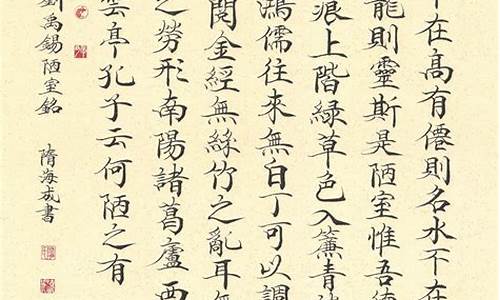 在高有僊則名水不在
龍則靈斯是陋室惟吾德
痕上階綠草色入簾青
鴻儒往來無白丁可以調
閱金經無絲竹之亂耳無
之勞形南陽諸葛廬西
雲亭孔子云何陋之有
劉禹錫陋室銘 隋海成書